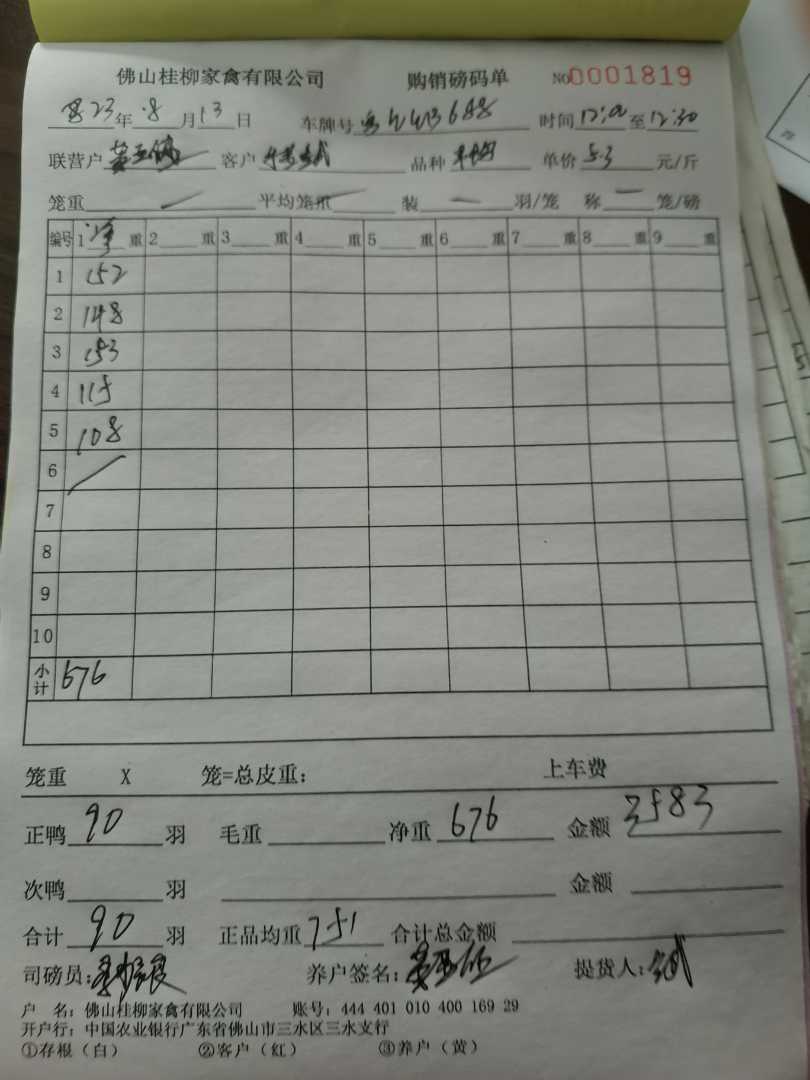 佛山桂柳家禽有限公司 购销磅码单 NO0001819
23年 8 月 13 日 车牌号 688 时间 12:00 至 12:30
联营户 客户 品种 单价 5.3 元/斤
笼重 平均笼重 装 羽/笼 称 笼/磅
编号 1 净 重 2 重 3 重 4 重 5 重 6 重 7 重 8 重 9 重
1 152
2 148
3 153
4 115
5 108
6
7
8
9
10
小计 676
笼重 X 笼=总皮重: 上车费
正鸭 90 羽 毛重 净重 676 金额 3583
次鸭 羽 金额
合计 90 羽 正品均重 751 合计总金额
司磅员: 养户签名: 提货人:
户 名: 佛山桂柳家禽有限公司 账号: 444 401 010 400 169 29
开户行: 中国农业银行广东省佛山市三水区三水支行
①存根(白) ②客户(红) ③养户(黄)